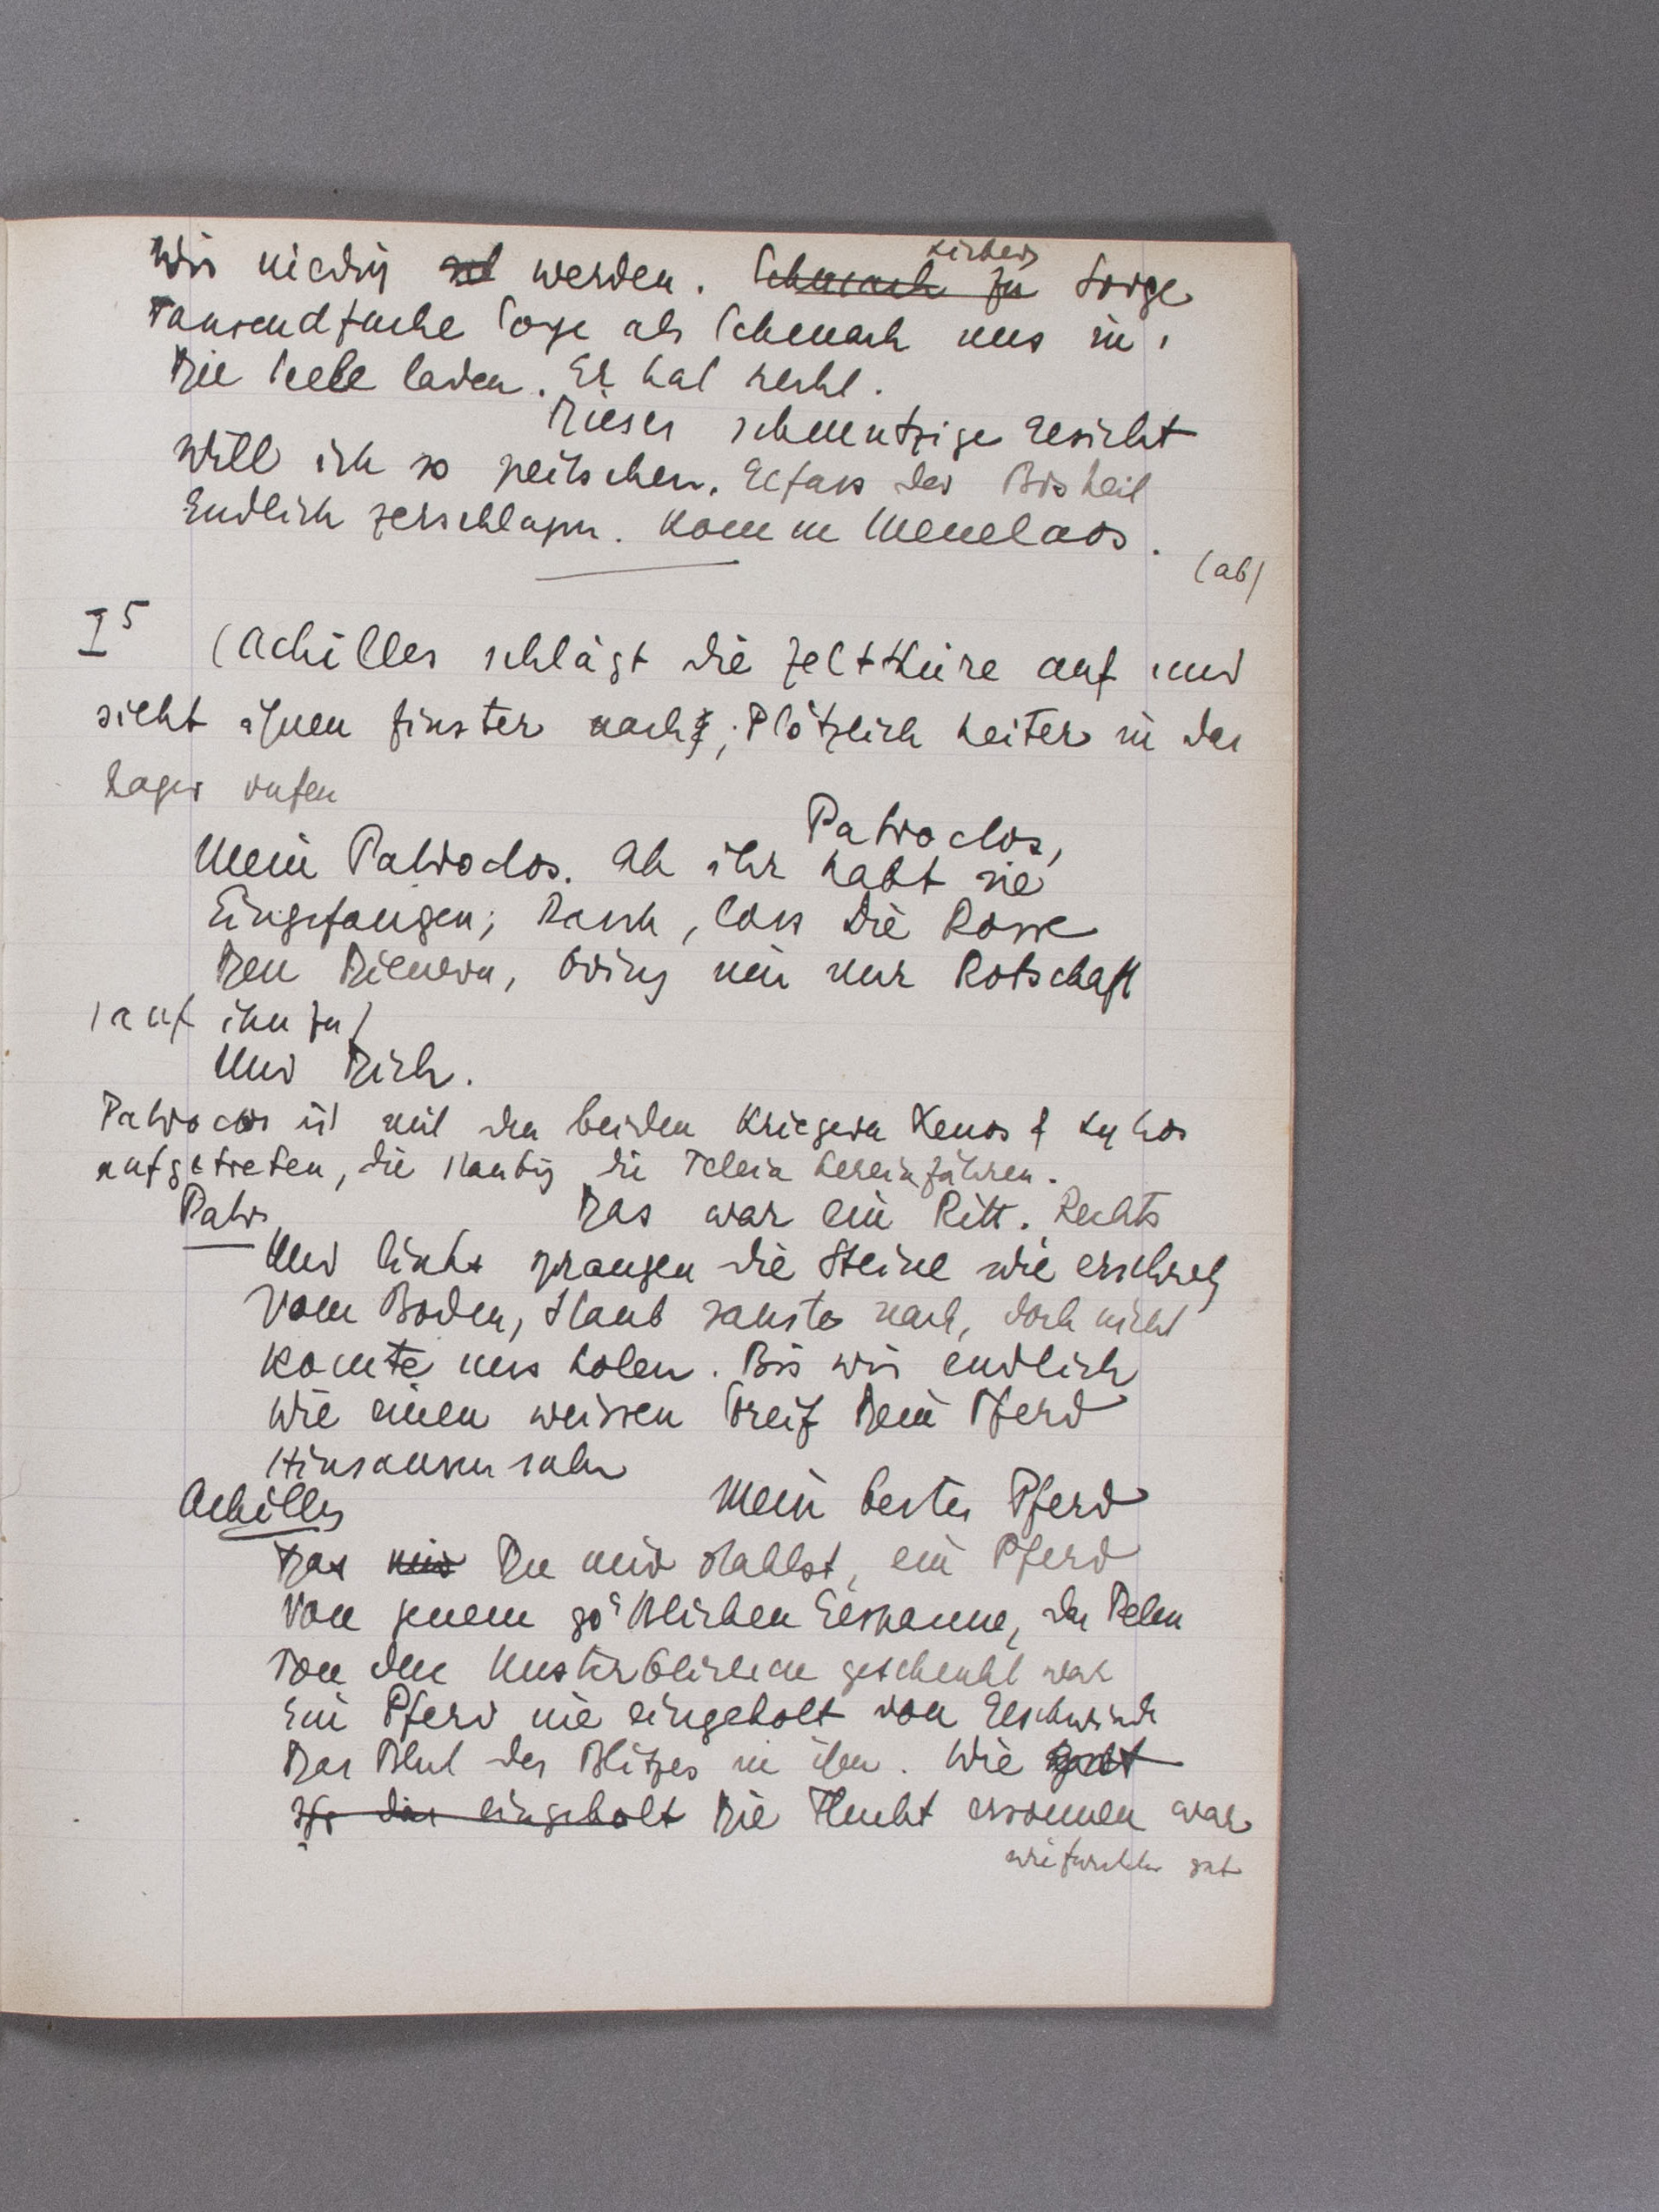 Wir niedrig werden. Schmach zu Lieber Sorge
Tausendfache Sorge als Schmach uns in
Die Seele laden. Er hat recht.
Dieses schmutzige Gesicht
Will ich so peitschen, Gefäss der Bosheit
Endlich zerschlagen. Komm Menelaos.
(ab)
I 5 (Achilles schlägt die Zelttüre auf und
sieht ihnen finster nach; Plötzlich heiter in das
Lager rufen
Patroclos,
Mein Patroclos. Ah ihr habt sie
Eingefangen; Rasch, lass die Rosse
Den Dienern, bring mir nur Botschaft
(auf ihn zu)
Und Dich.
Patroclos ist mit den beiden Kriegern Xenos & Lykos
aufgetreten, die staubig die Teleia hereinführen.
Patr. Das war ein Ritt. Rechts
Und links sprangen die Steine wie erschreckt
Vom Boden, Staub sauste nach, doch nicht
Konnte uns holen. Bis wir endlich
Wie einen weissen Greif Dein Pferd
Hinsausen sahn
Achilles Mein bestes Pferd
Das mir Du mir stahlst, ein Pferd
Von jenem göttlichen Gespanne, das Peleu
Von den Unsterblichen geschenkt war
Ein Pferd nie eingeholt von Geschwinde
Das Blut des Blitzes in ihm. Wie
Ihr das eingeholt Die Flucht ersonnen war
gut